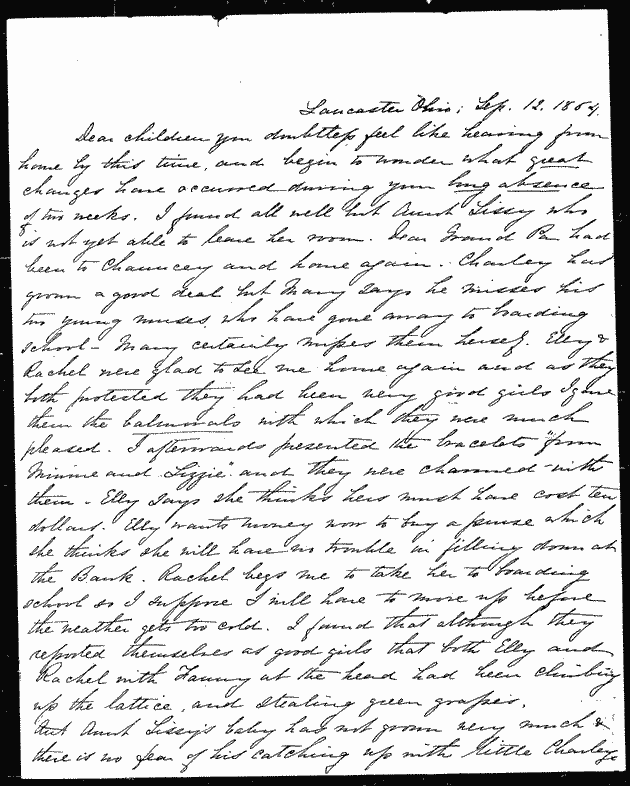 Lancaster Ohio; Sep. 12. 1864.
Dear children you doubtless feel like hearing from
home by this time, and begin to wonder what great
changes have occurred during your long absence
of two weeks. I found all well but Aunt Sissy who
is not yet able to leave her room. Dear Grand Pa had
been to Chauncey and home again. Charley has
grown a good deal but Mary says he misses his
two young nurses, who have gone away to boarding
school - Mary certainly misses them herself. Elly &
Rachel were glad to see me home again and as they
both protested they had been very good girls I gave
them the balmorals with which they were much
pleased. I afterwards presented the bracelets "from
Minnie and Lizzie" and they were charmed with
them - Elly says she thinks hers must have cost ten
dollars. Elly wants money now to buy a purse which
she thinks she will have no trouble in filling down at
the Bank. Rachel begs me to take her to boarding
school so I suppose I will have to move up before
the weather gets too cold. I found that although they
reported themselves as good girls that both Elly and
Rachel with Fanny at the head had been climbing
up the lattice, and stealing green grapes.
Aunt Sissy's baby has not grown very much &
there is no fear of his catching up with little Charley.